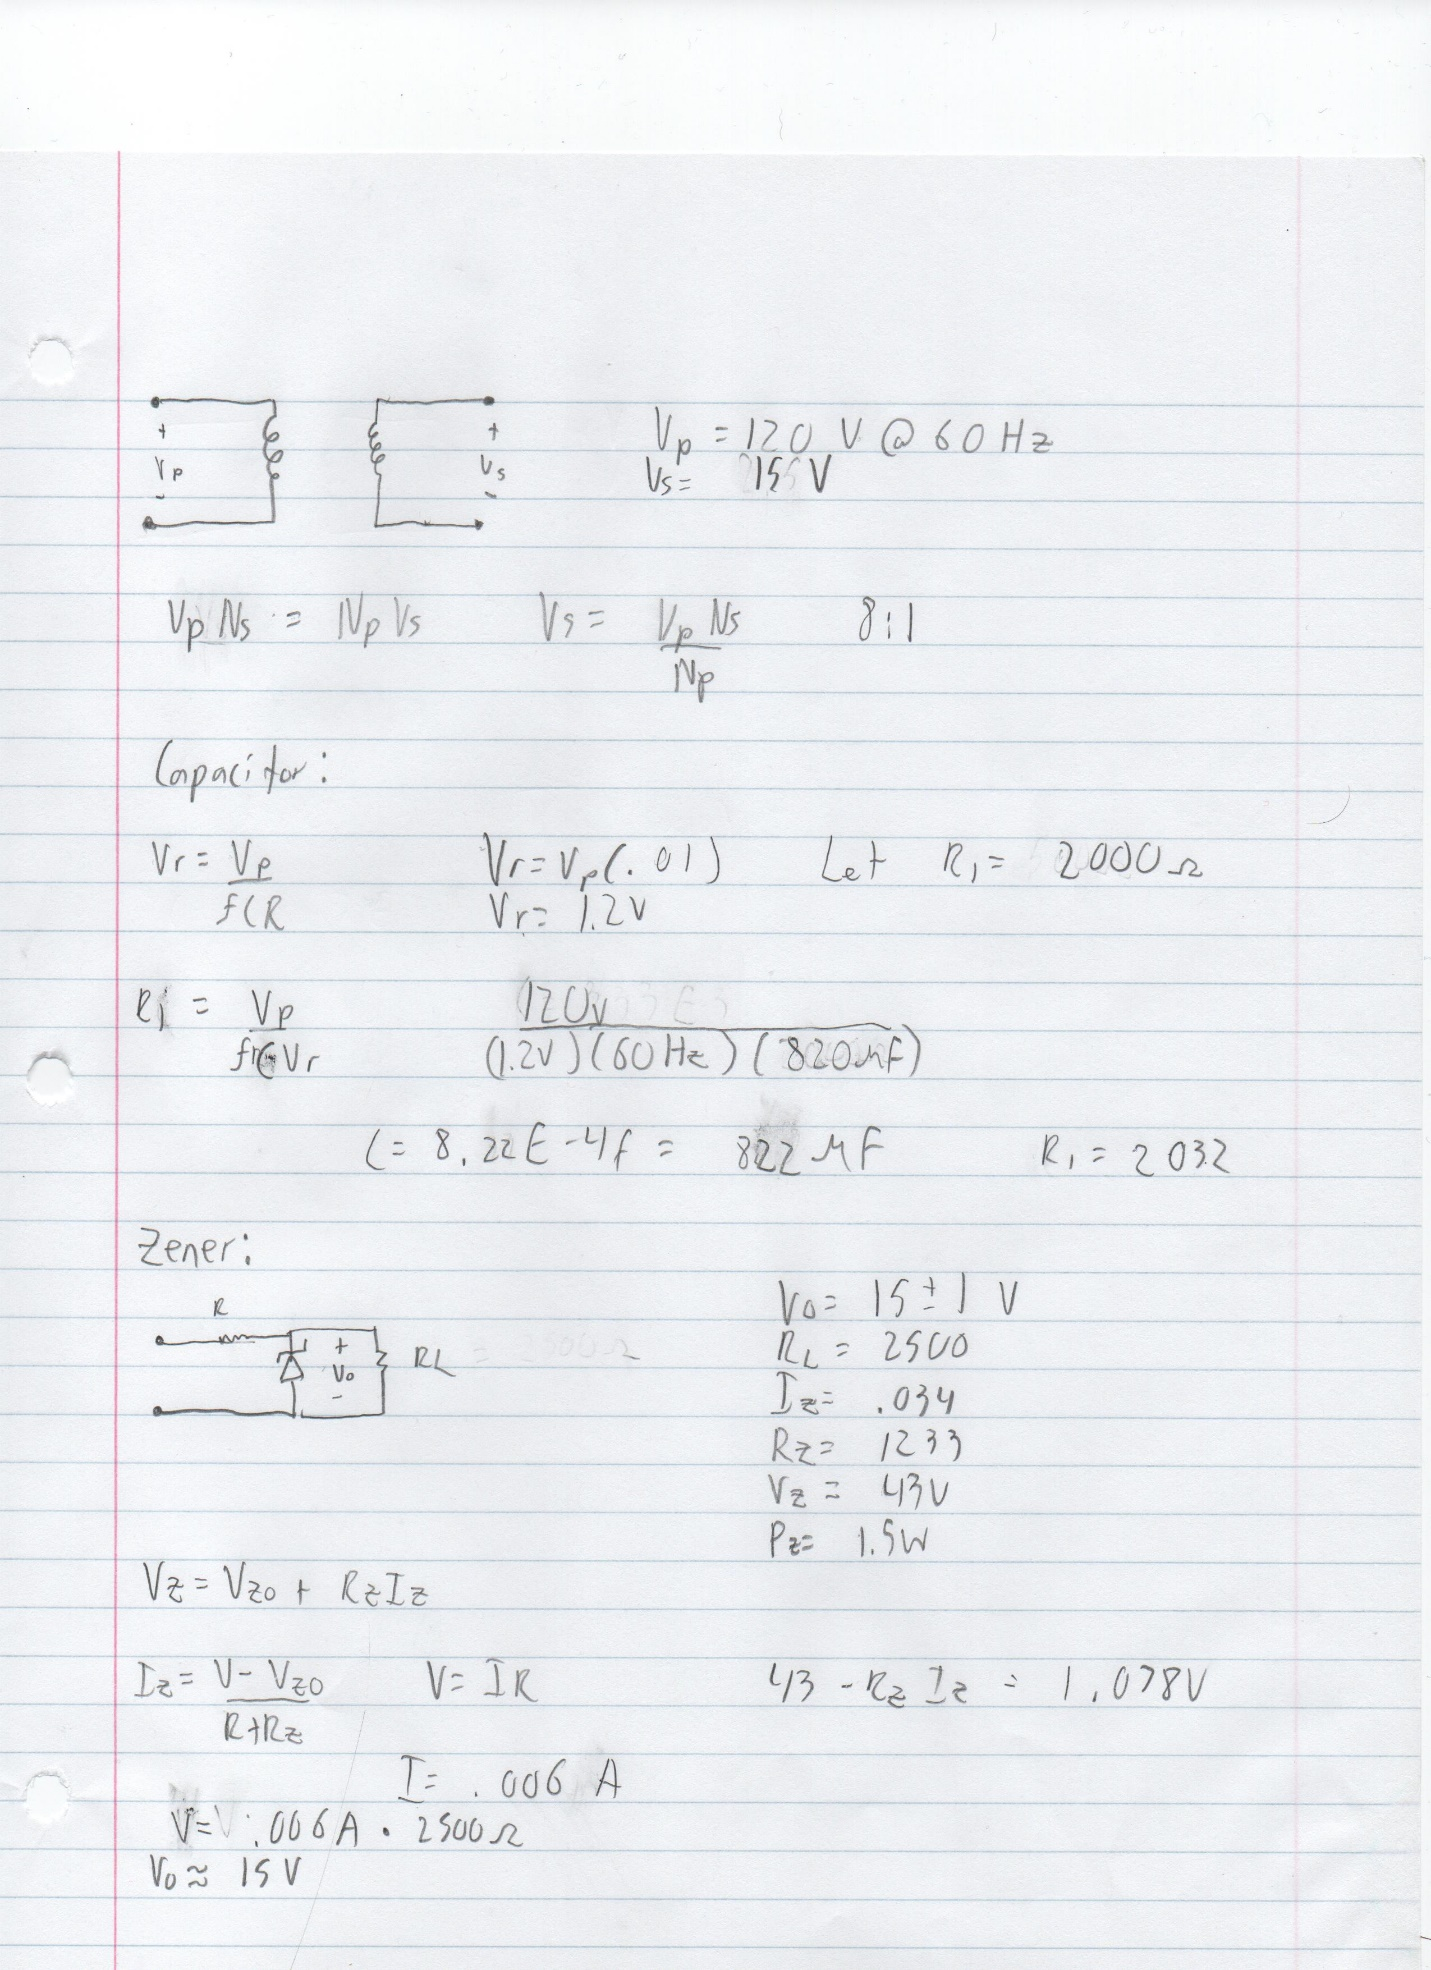 + + Vp = 120 V @ 60 Hz
Vp Vs Vs = 15 V
- -
Vp Ns = Np Vs Vs = Vp Ns / Np 8:1
Capacitor:
Vr = Vp / fCR Vr = Vp(.01) Let R1 = 2000Ω
Vr = 1.2V
R1 = Vp / fCVr 120v / (1.2V)(60Hz)(820μF)
C = 8.22E-4f = 822 μF R1 = 2032
Zener:
R
+ Vo - RL
Vo = 15 ± 1 V
RL = 2500
Iz = .034
Rz = 1233
Vz = 43V
Pz = 1.5W
Vz = Vzo + RzIz
Iz = V - Vzo / R+Rz V = IR 43 - Rz Iz = 1.078V
I = .006 A
V = .006A · 2500Ω
Vo ≈ 15 V